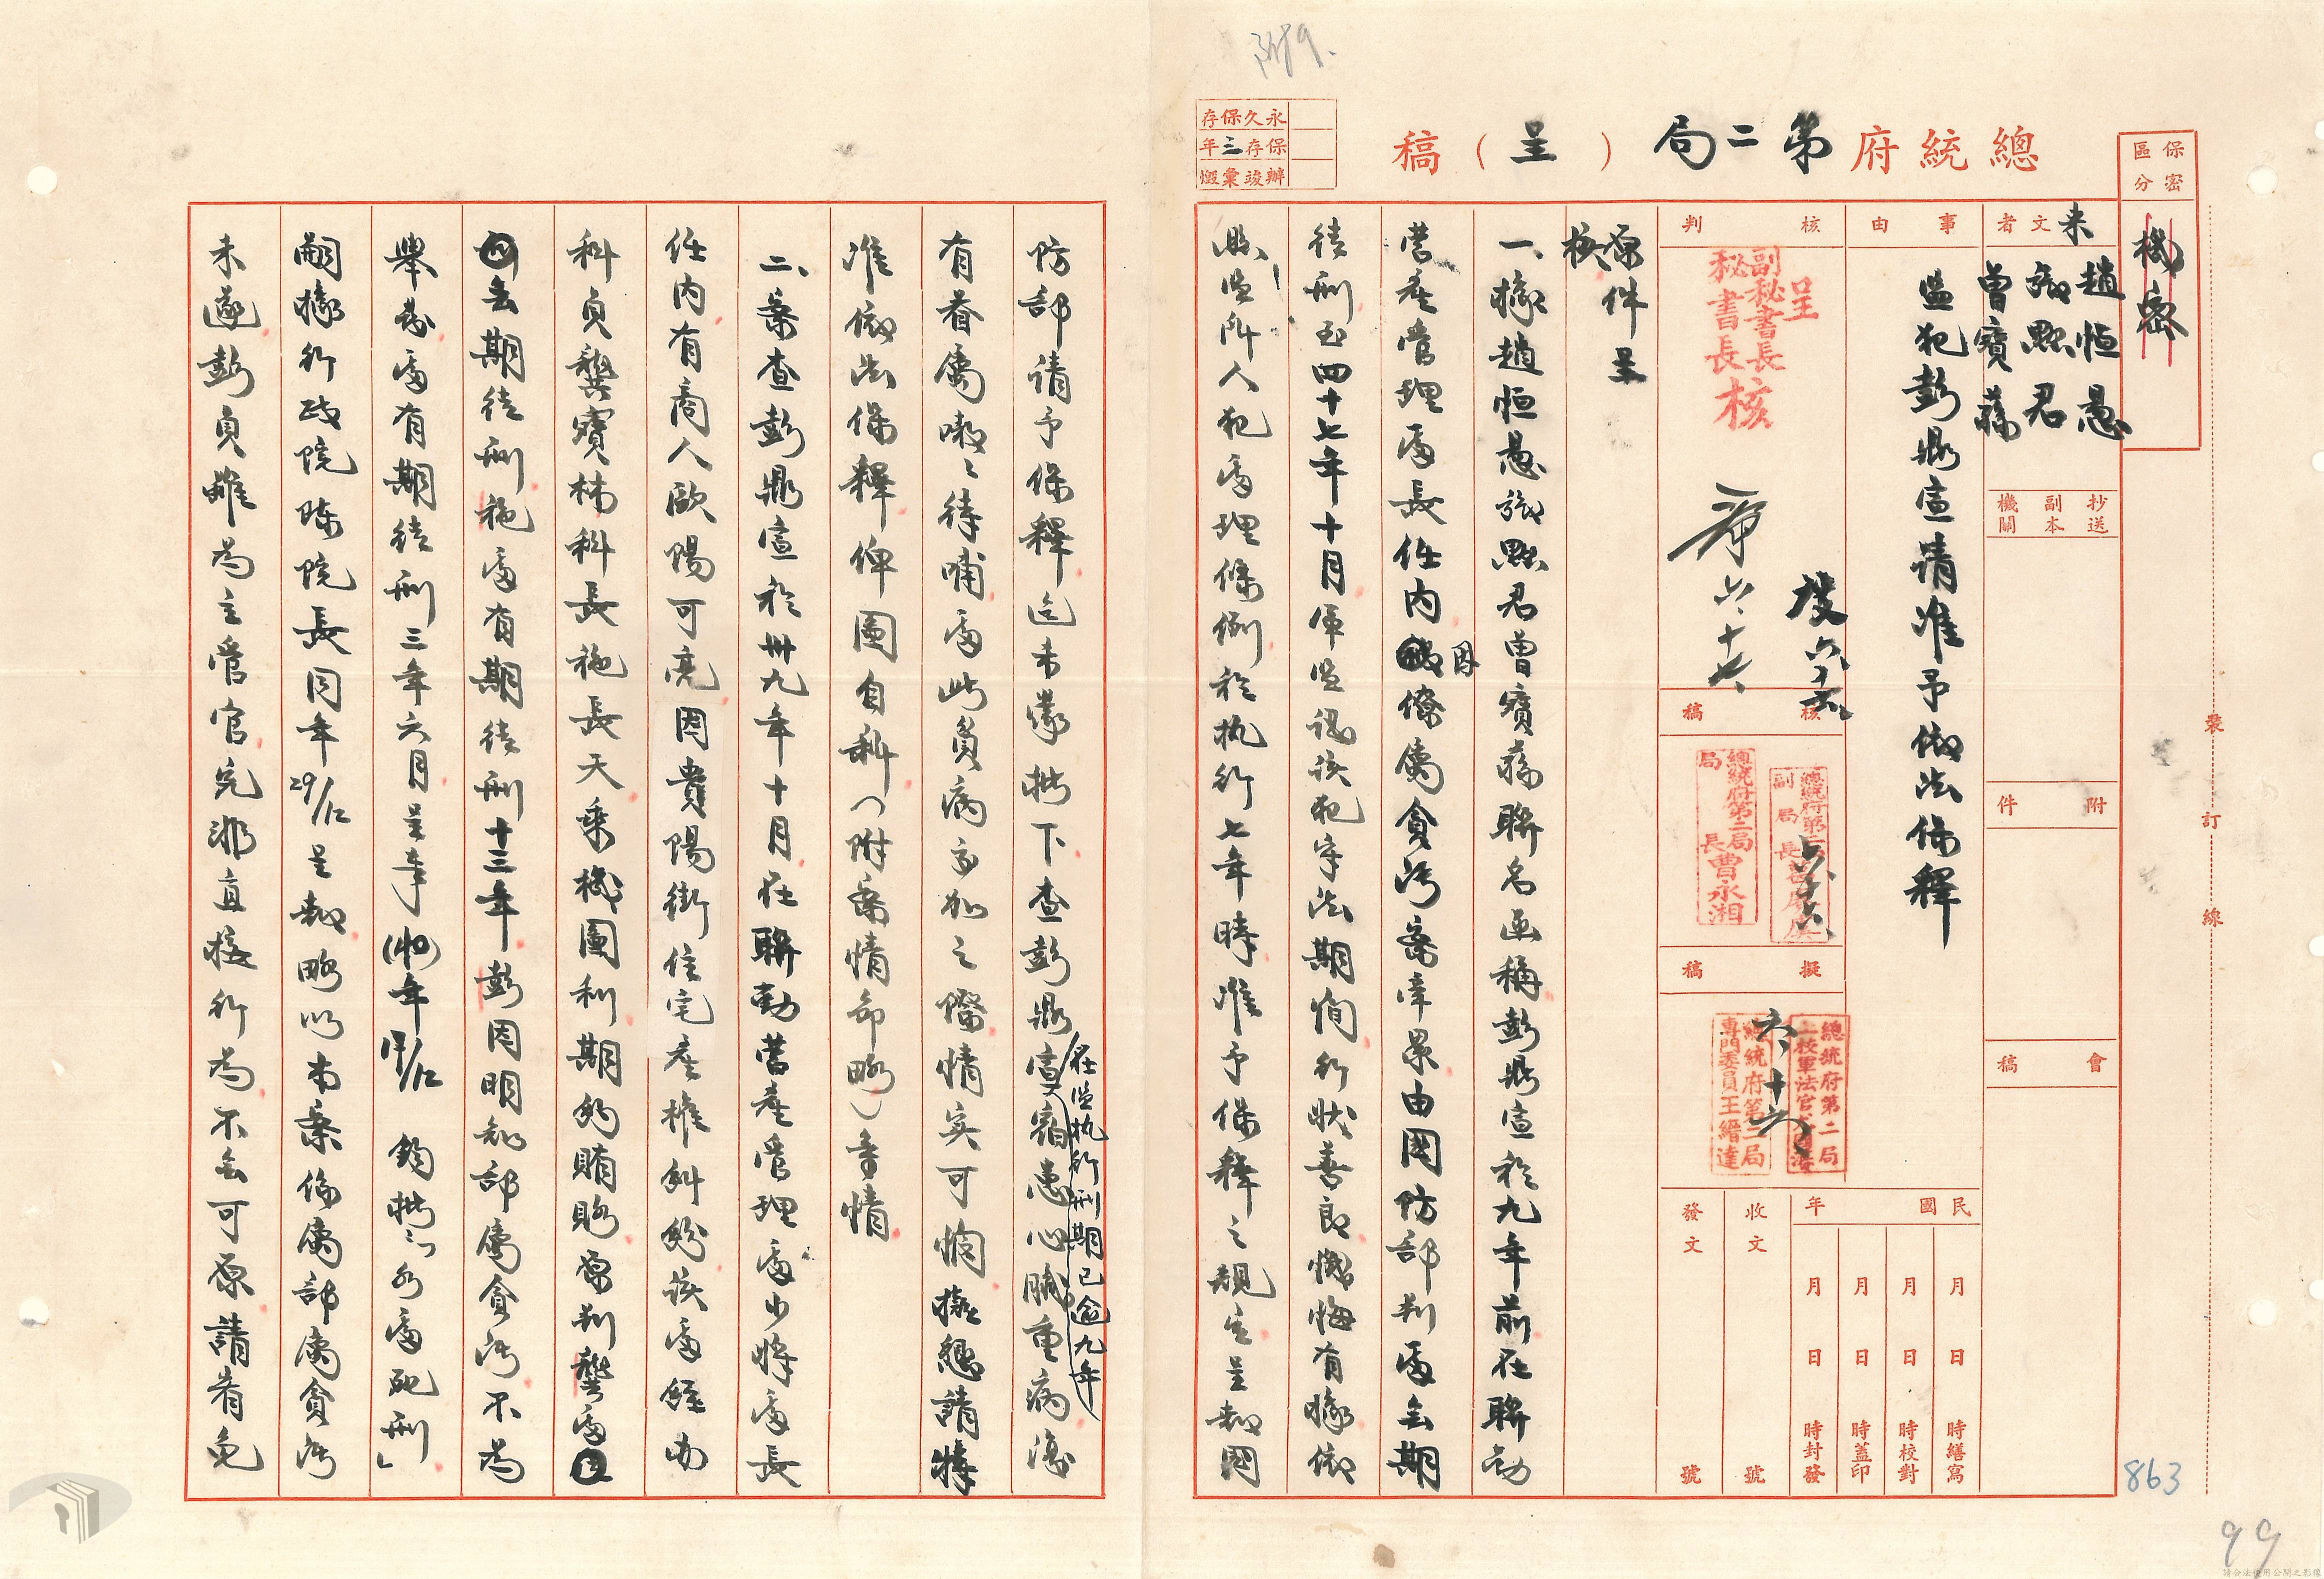 附9.
總統府第二局（呈）稿
永久保存
保存三年
辦竣彙燬
保密區分
機密
來文者
趙恒惕
張默君
曾寶蓀
抄送副本機關
附件
會稿
事由
監犯彭鼎宣請准予依法保釋
核判
呈
副秘書長
秘書長
核
六、十五、
六、十七、
核稿
總統府第二局
副局長
總統府第二局
局長曹永湘
六、十六、
擬稿
總統府第二局
上校軍法官
總統府第二局
專門委員王縉達
六、十六、
民國 年
月 日 時繕寫
月 日 時校對
月 日 時蓋印
月 日 時封發
收文 號
發文 號
原件呈
核
一、據趙恒惕張默君曾寶蓀聯名函稱彭鼎宣於九年前在聯勤
營產管理處長任內因僚屬貪污案牽累由國防部判處無期
徒刑至四十七年十月軍監認該犯守法期間行狀善良懺悔有據依
照監所人犯處理條例於執行七年時准予保釋之規定呈報國
防部請予保釋迄未蒙批下查彭鼎宣在監執行刑期已逾九年宿患心臟重病後
有眷屬嗷嗷待哺處此貧病交加之際情實可憫擬懇請特
准依法保釋俾圖自新（附案情節略）等情
二、案查彭鼎宣於卅九年十月在聯勤營產管理處少將處長
任內有商人歐陽可亮因貴陽街住宅產權糾紛該處經辦
科員龔寶梯科長施長天乘機圖利期約賄賂原判龔處
無期徒刑施處有期徒刑十三年彭因明知部屬貪污不為
舉發處有期徒刑三年六月呈奉(40)年 /12 鈞批「均處死刑」
嗣據行政院陳院長同年29/12呈報略以本案係屬部屬貪污
未遂彭員雖為主管官究非直接行為不無可原請省免
裝訂線
863
99